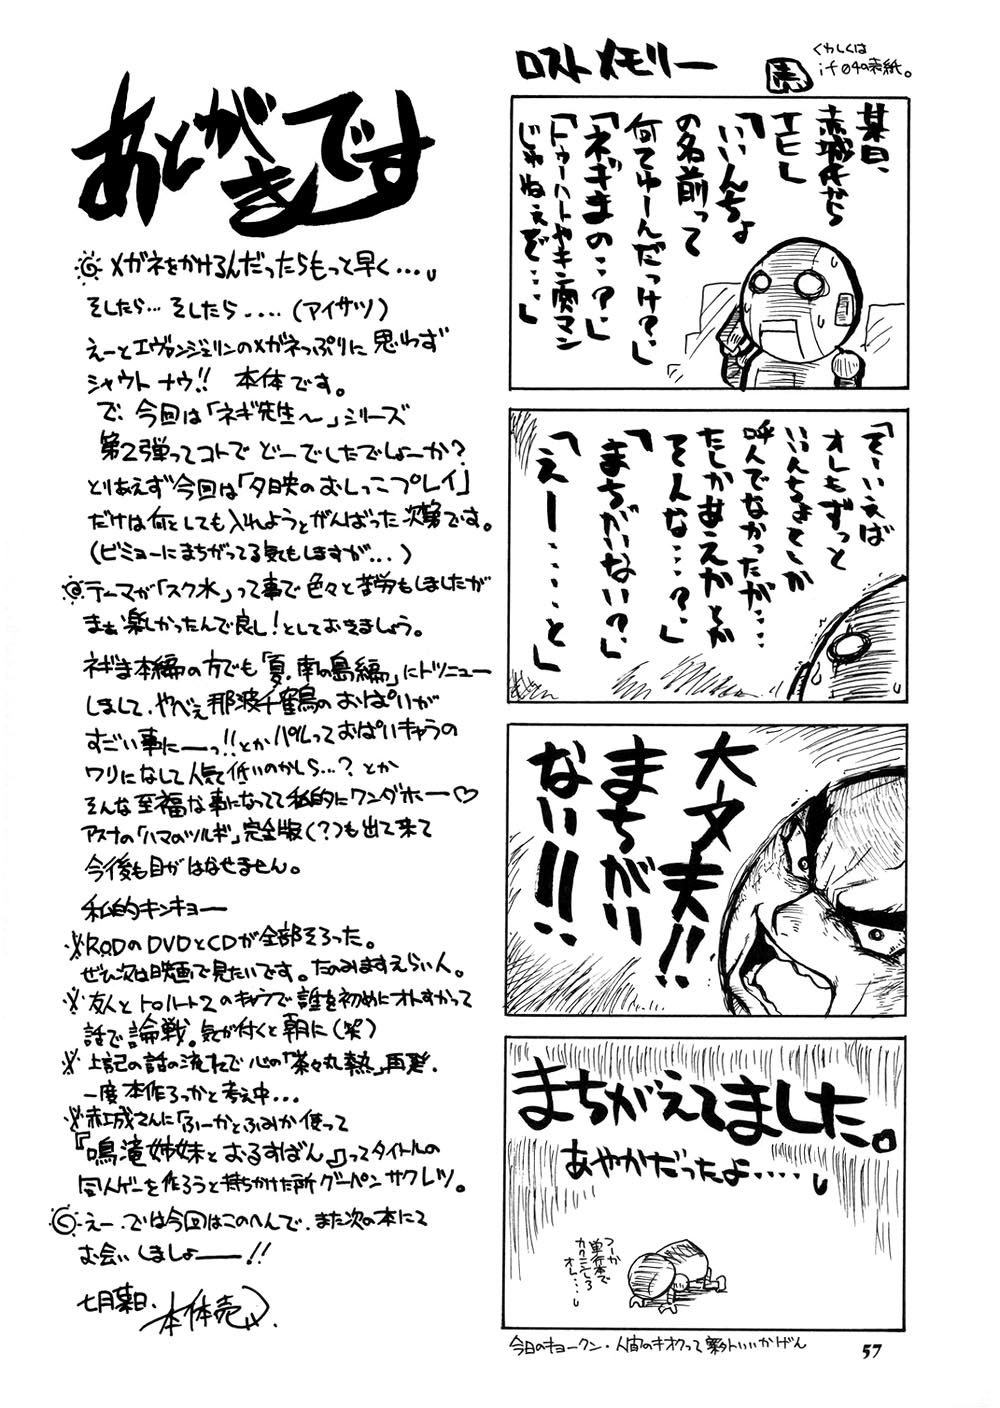 あとがきです
メガネをかけるんだったらもっと早く…。
そしたら…そしたら‥‥(アイサツ)
えーとエヴァンジェリンのメガネっぷりに思わず
シャウトナウ!! 本体です。
で、今回は「ネギ先生〜」シリーズ
第2弾ってコトでどーでしたでしょーか?
とりあえず今回は「夕日映のおしっこプレイ」
だけは何としても入れようとがんばった次第です。
(ビミョーにまちがってる気もしますが…)
テーマが「スク水」って事で色々と苦労もしましたが
まぁ楽しかったんで良し!としておきましょう。
ネギま本編の方でも「夏、南の島編」にトツニュー
しまして、やべぇ那波千鶴のおぱいが
すごい事にーーっ!!とかパルっておぱいキャラの
ワリになして人気低いのかしら…?とか
そんな至福な事になってて私的にワンダホー♡
アスナの「ハマのツルギ」完全版(?)も出て来て
今後も目がはなせません。
私的キンキョー
RODのDVDとCDが全部そろった。
ぜひ次は映画で見たいです。たのみますえらい人。
友人とトゥハート2のキャラで誰を初めにオトすかって
話で論戦。気が付くと朝に(笑)
上記の話の流れで心の「茶々丸熱」再発。
一度本作ろっかと考え中…
赤城さんに「ふーかとふみか使って
『鳴滝姉妹とおるすばん』」ってタイトルの
同人ゲーを作ろうと持ちかけた所グーパンサクレツ。
えー、では今回はこのへんで、また次の本にて
お会いしましょーー!!
七月某日、本体売
ロストメモリー
くわしくは
if04の表紙。
某日、
赤城氏から
TELし
「いいんちょ
の名前って
何てゆーんだっけ?」
「ネギまの‥?」
「トゥーハートやキン肉マン
じゃねぇぞ…」
「そーいえば
オレもずっと
いいんちょとしか
呼んでなかったが‥‥
たしかあえかとか
そんな‥‥?」
「まちがいない?」
「えー‥‥と」
大丈夫!!
まちがい
ない!!
まちがえてました。
あやかだったよ‥‥。
つーか
単行本で
カクニンしろ
オレ‥‥。
今日のキョークン・人間のキオクって案外いいかげん
57